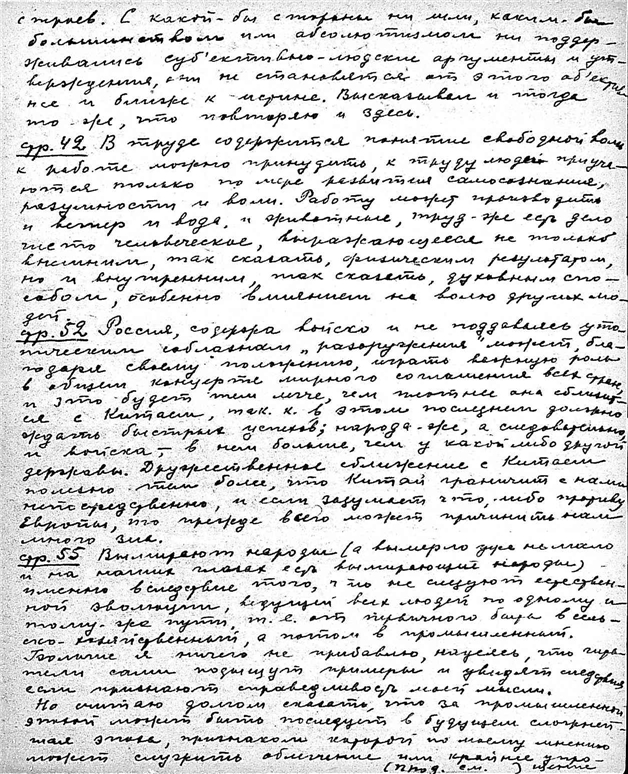 строев. С какой-бы стороны ни шли, каким-бы
большинством или абсолютизмом ни поддер-
живались суб'ективно-людские аргументы и ут-
верждения, они не становятся от этого об'ектив
нее и ближе к истине. Высказывал и тогда
то-же, что повторяю и здесь.
стр. 42 В труде содержится понятие свободной воли
к работе можно принудить, к труду людей приуча-
ются только по мере развития самосознания,
разумности и воли. Работу может производить
и ветер и вода, и животные, труд-же есть дело
чисто человеческое, выражающееся не только
внешним, так сказать, физическим результатом,
но и внутренним, так сказать, духовным спо-
собом, особенно влиянием на волю других лю-
дей.
стр. 52 Россия, содержа войско и не поддаваясь уто-
пическим соблазнам "разоружения" может, бла-
годаря своему положению, играть важную роль
в общем концерте мирного соглашения всех стран,
и это будет тем легче, чем плотнее она сблизит-
ся с Китаем, так. к. в этом последнем должно
ждать быстрых успехов; народа-же, а следовательно,
и войска - в нем больше, чем у какой либо другой
державы. Дружественное сближение с Китаем
полезно тем более, что Китай граничит с нами
непосредственно, и если задумает что, либо противу
Европы, то прежде всего может причинить нам
много зла.
стр. 55 Вымирают народы (а вымерло уже не мало
и на наших глазах есть вымирающие народы) -
именно вследствие того, что не следуют естествен-
ной эволюции, ведущей всех людей по одному и
тому-же пути, т. е. от первичного быта в сель-
ско-хозяйственный, а потом в промышленный.
Больше я ничего не прибавлю, надеясь, что чита-
тели сами подыщут примеры и увидят следствия
если признают справедливость моей мысли.
Но считаю долгом сказать, что за промышленной
эпохой может быть последует в будущем сложней-
шая эпоха, признаком которой по моему мнению
может служить облегчение или крайнее упро-
(прод. см. ) щение